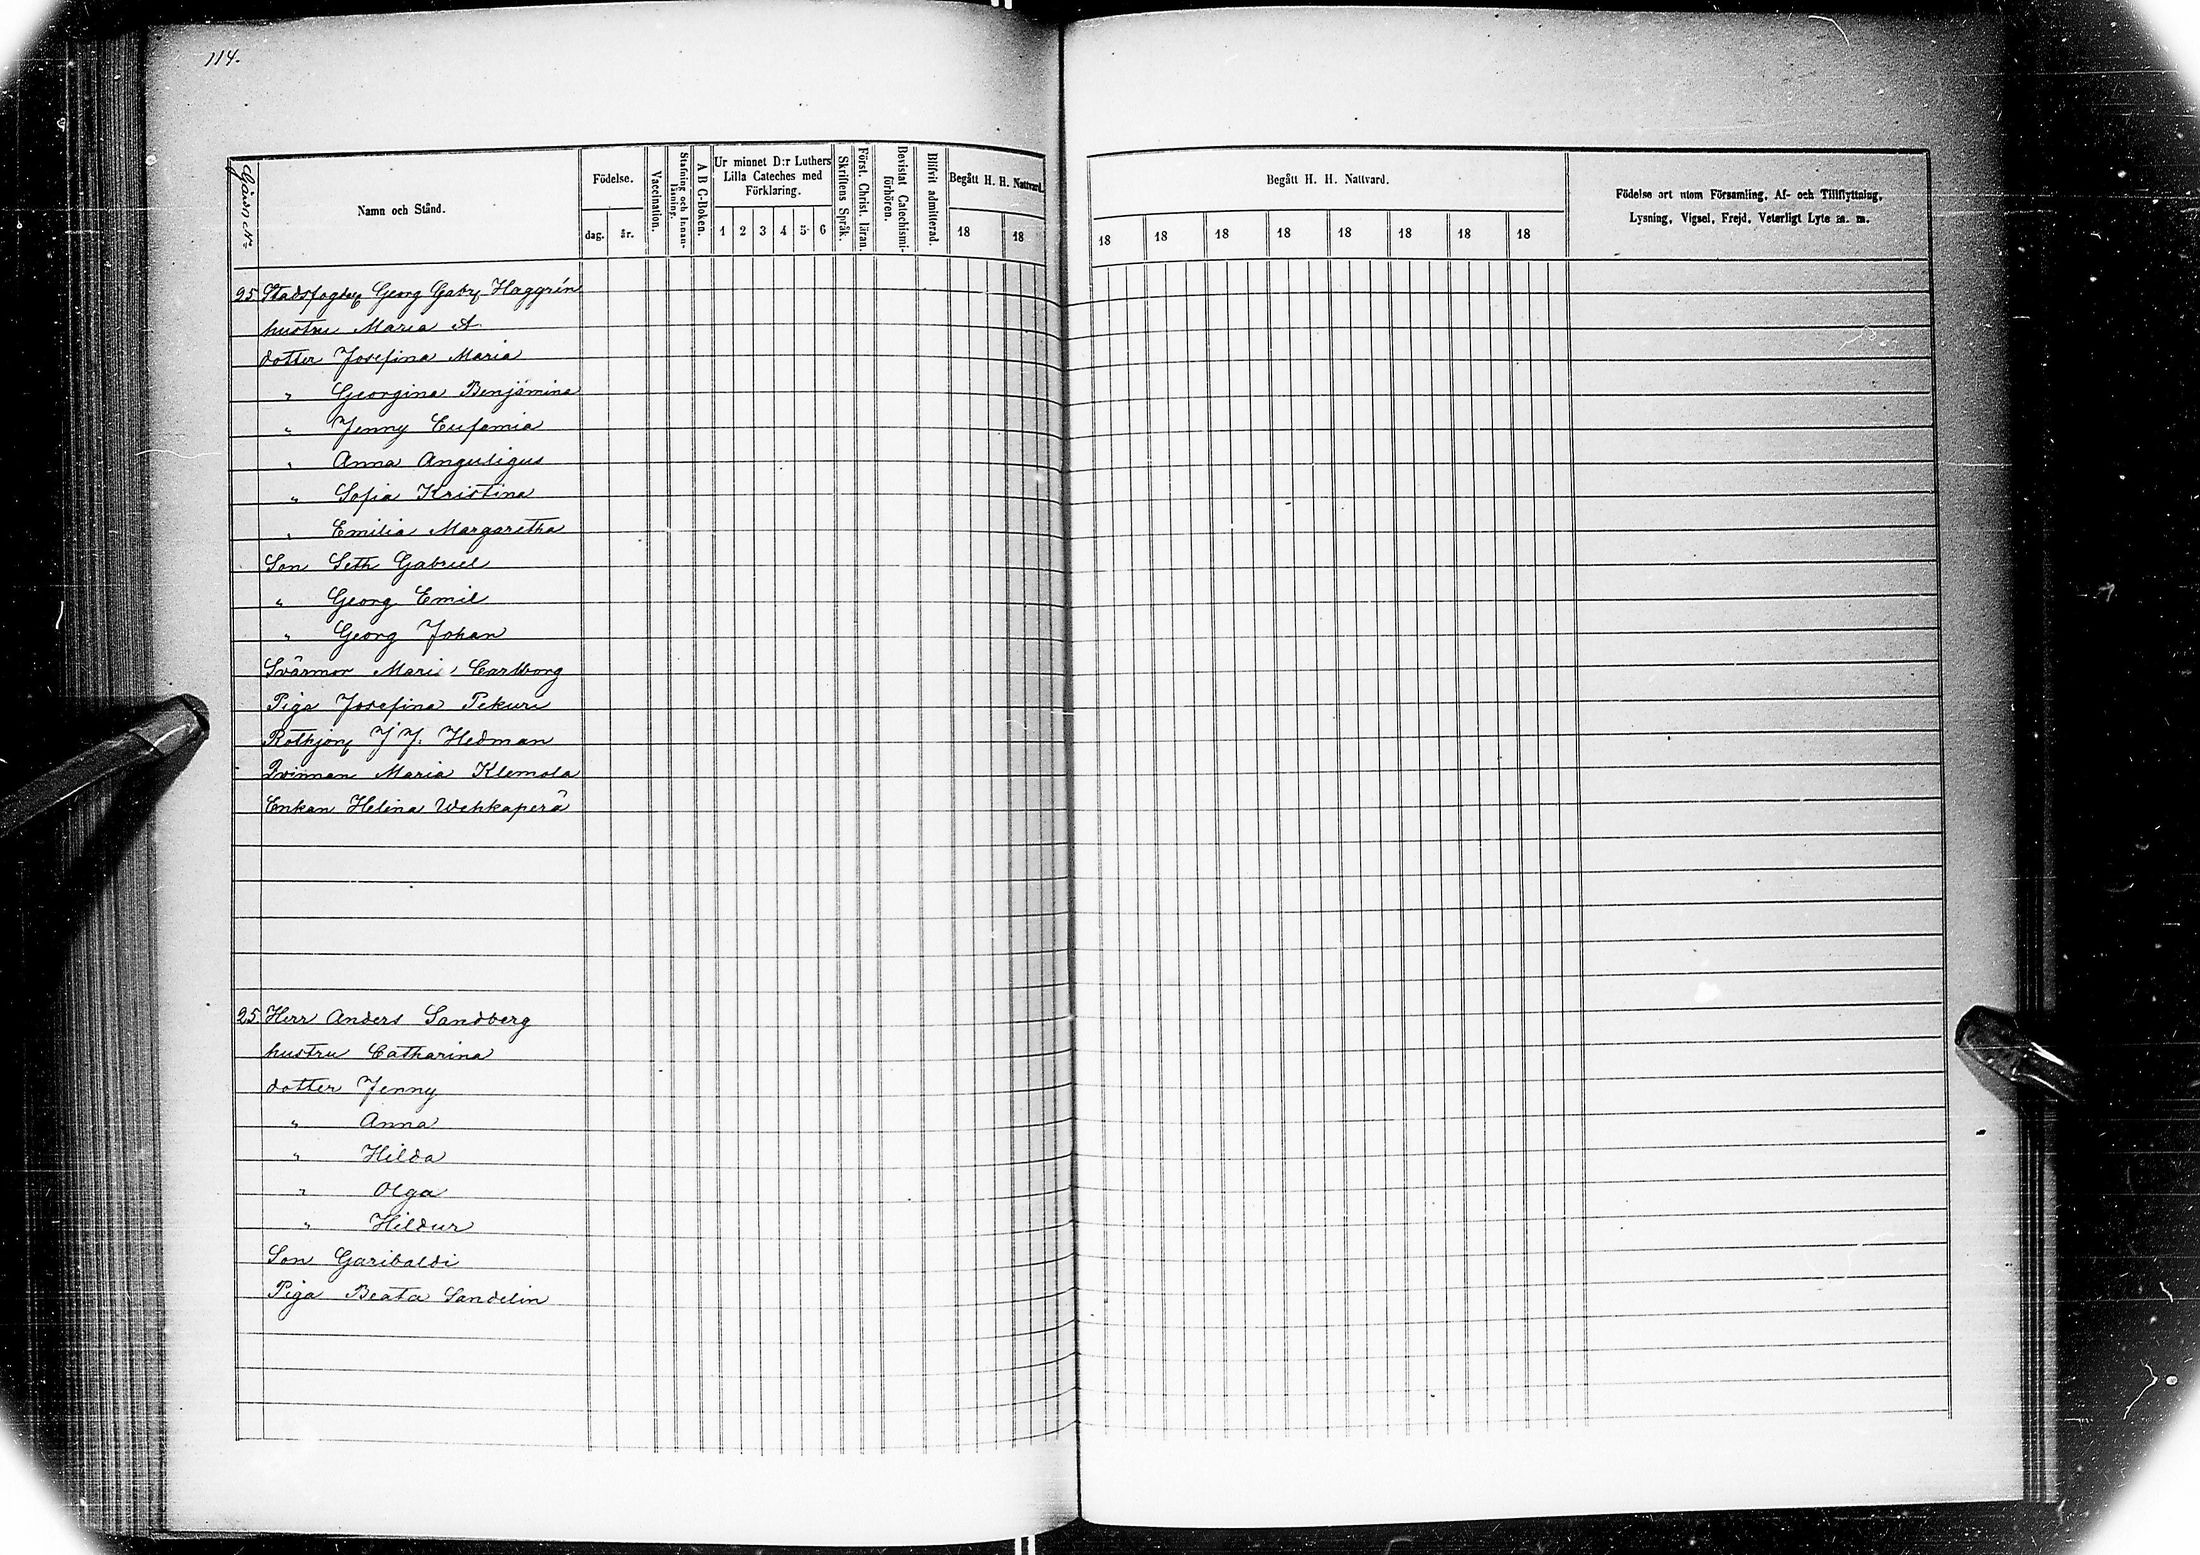 114.
Gårds No
Namn och Stånd.
Födelse.
dag.
år.
Vaccination.
Stafning och Innan-
läsning.
A B C-Boken.
Ur minnet D:r Luthers
Lilla Cateches med
Förklaring.
1 2 3 4 5 6
Skriftens Språk.
Först. Christ. läran.
Bevistat Catechismi-
förhören.
Blifvit admitterad.
Begått H. H. Nattvard.
18 18
Begått H. H. Nattvard.
18 18 18 18 18 18 18 18
Födelse ort utom Församling, Af- och Tillflyttning,
Lysning, Vigsel, Frejd, Veterligt Lyte m. m.
25 Stadsfogden Georg Gabr. Häggrén
hustru Maria A.
dotter Josefina Maria
" Georgina Benjamina
" Jenny Eufemia
" Anna
" Sofia Kristina
" Emilia Margaretha
Son Seth Gabriel
" Georg Emil
" Georg Johan
Svärmor Maria Carlborg
Piga Josefina Pekuri
J J. Hedman
Qvinnan Maria Klemola
Enkan Helena Wehkaperä
25. Herr Anders Sandberg
hustru Catharina
dotter Jenny
" Anna
" Hilda
" Olga
" Hildur
Son Garibaldi
Piga Beata Sandelin